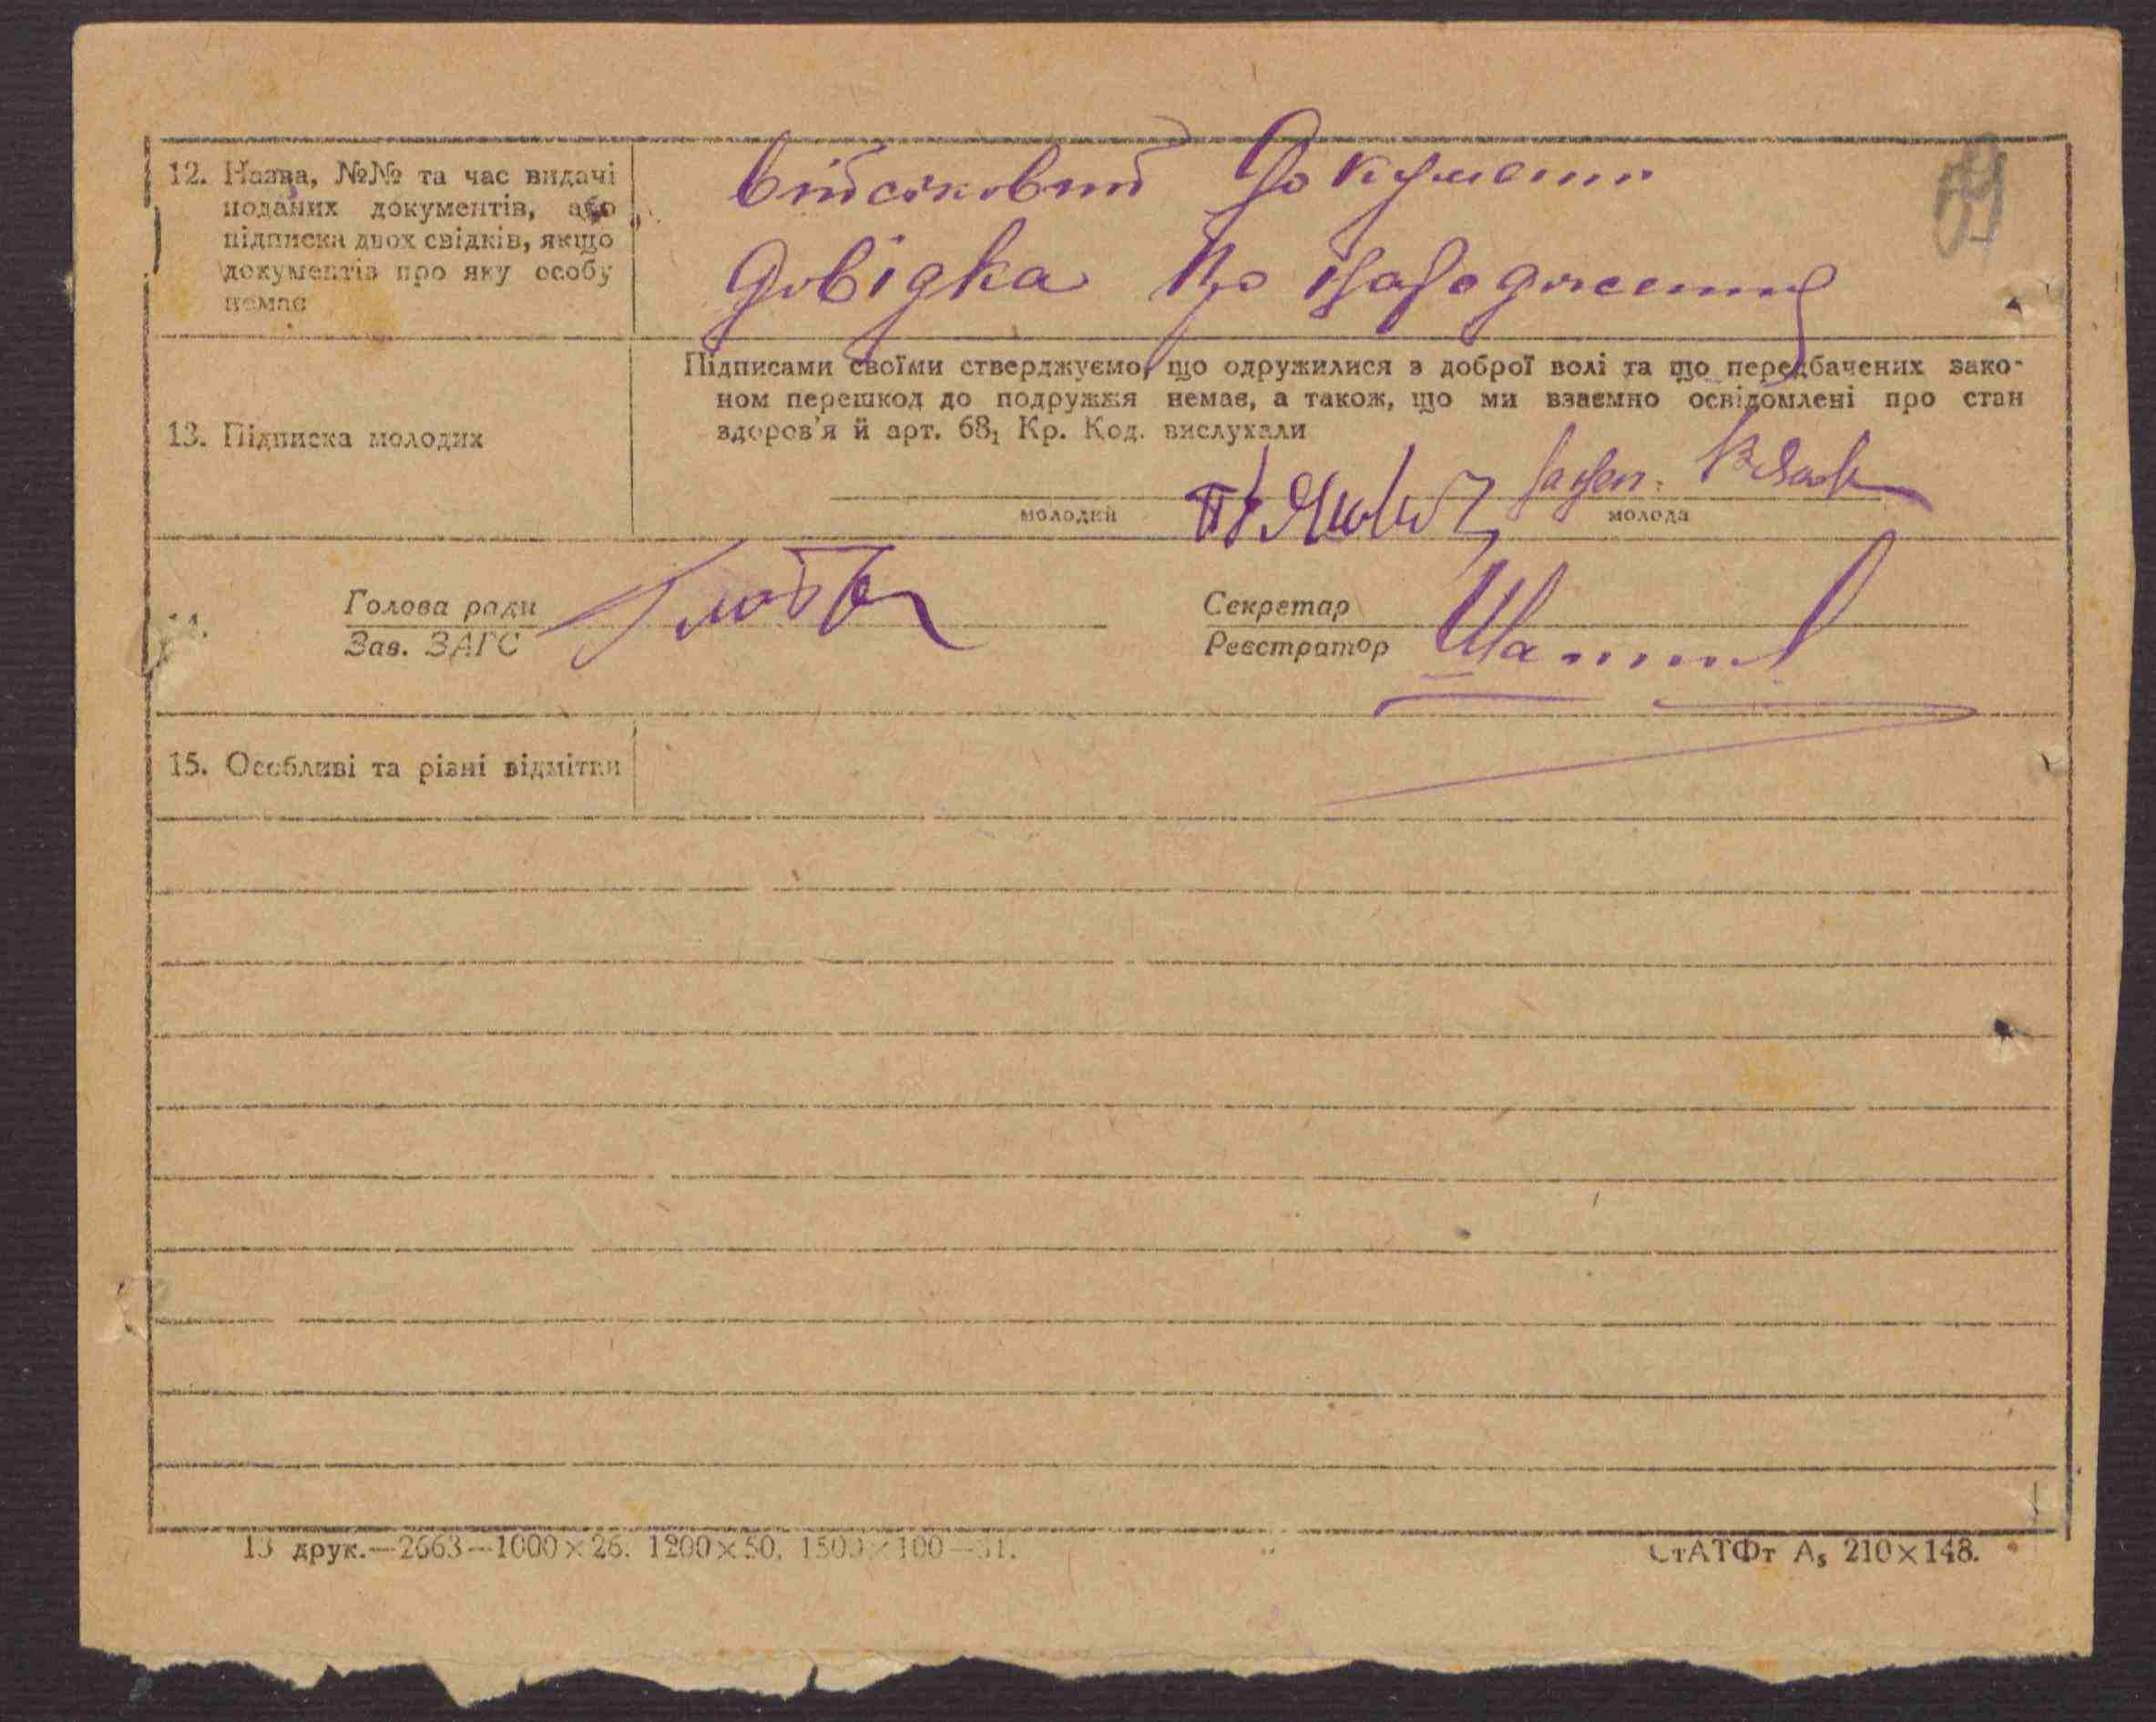 12. Назва, №№ та час видачі
поданих документів, або
підписка двох свідків, якщо
документів про яку особу
немає
військовий документ
довідка про народження
13. Підписка молодих
Підписами своїми стверджуємо, що одружилися з доброї волі та що передбачених зако-
ном перешкод до подружжя немає, а також, що ми взаємно освідомлені про стан
здоров'я й арт. 68₁ Кр. Код. вислухали
молодий
молода
14.
Голова ради
Зав. ЗАГС
Секретар
Реєстратор
15. Особливі та різні відмітки
13 друк.—2663—1000×26. 1200×50, 1500×100—31.
СтАТФт А₅ 210×148.